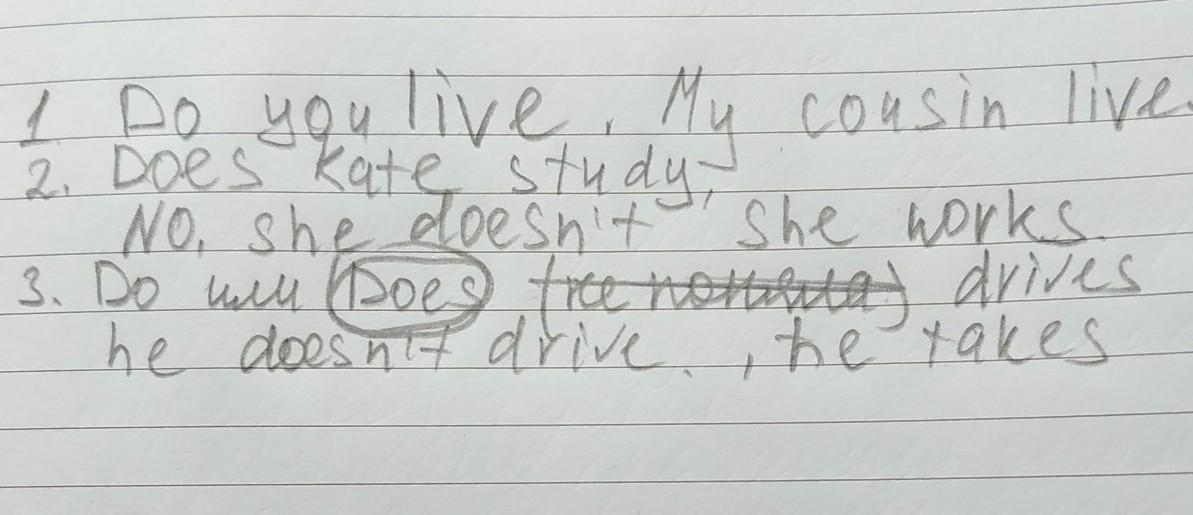 1 Do you live. My cousin live.
2. Does Kate study,
No, she doesn't she works
3. Do или Does drives
he doesn't drive., he takes